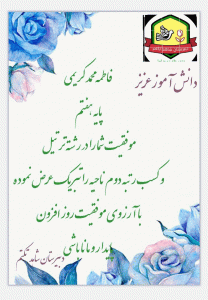 دانش آموز عزیز
فاطمه محمد کریمی
پایه هفتم
موفقیت شما در رشته ترتیل
و کسب رتبه دوم ناحیه را تبریک عرض نموده
با آرزوی موفقیت روز افزون
پایدار و مانا باشی
دبیرستان شاهد